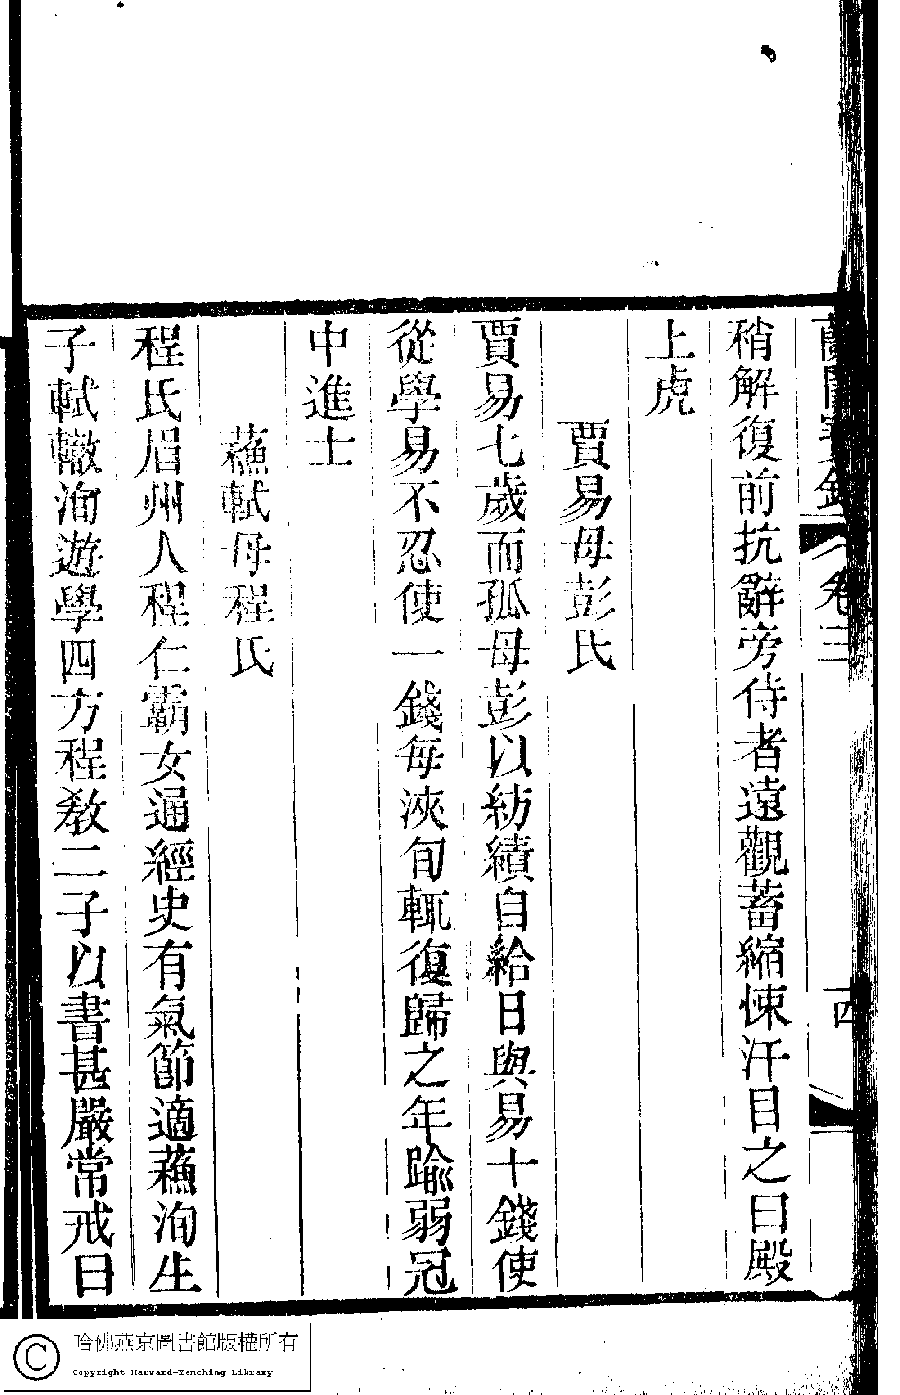 蘭閨寶錄 卷三 十四
稍解復前抗辭旁侍者遠觀蓄縮悚汗目之曰殿
上虎
賈易母彭氏
賈易七歲而孤母彭以紡績自給日與易十錢使
從學易不忍使一錢每浹旬輒復歸之年踰弱冠
中進士
蘓軾母程氏
程氏眉州人程仁霸女通經史有氣節適蘓洵生
子軾轍洵遊學四方程教二子以書甚嚴常戒曰
哈佛燕京圖書館版權所有
Copyright Harvard-Yenching Library